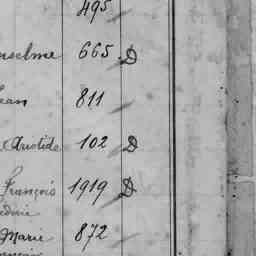 495
nselme 665 D
Jean 811
Aristide 102 D
François 1919 D
Marie 872